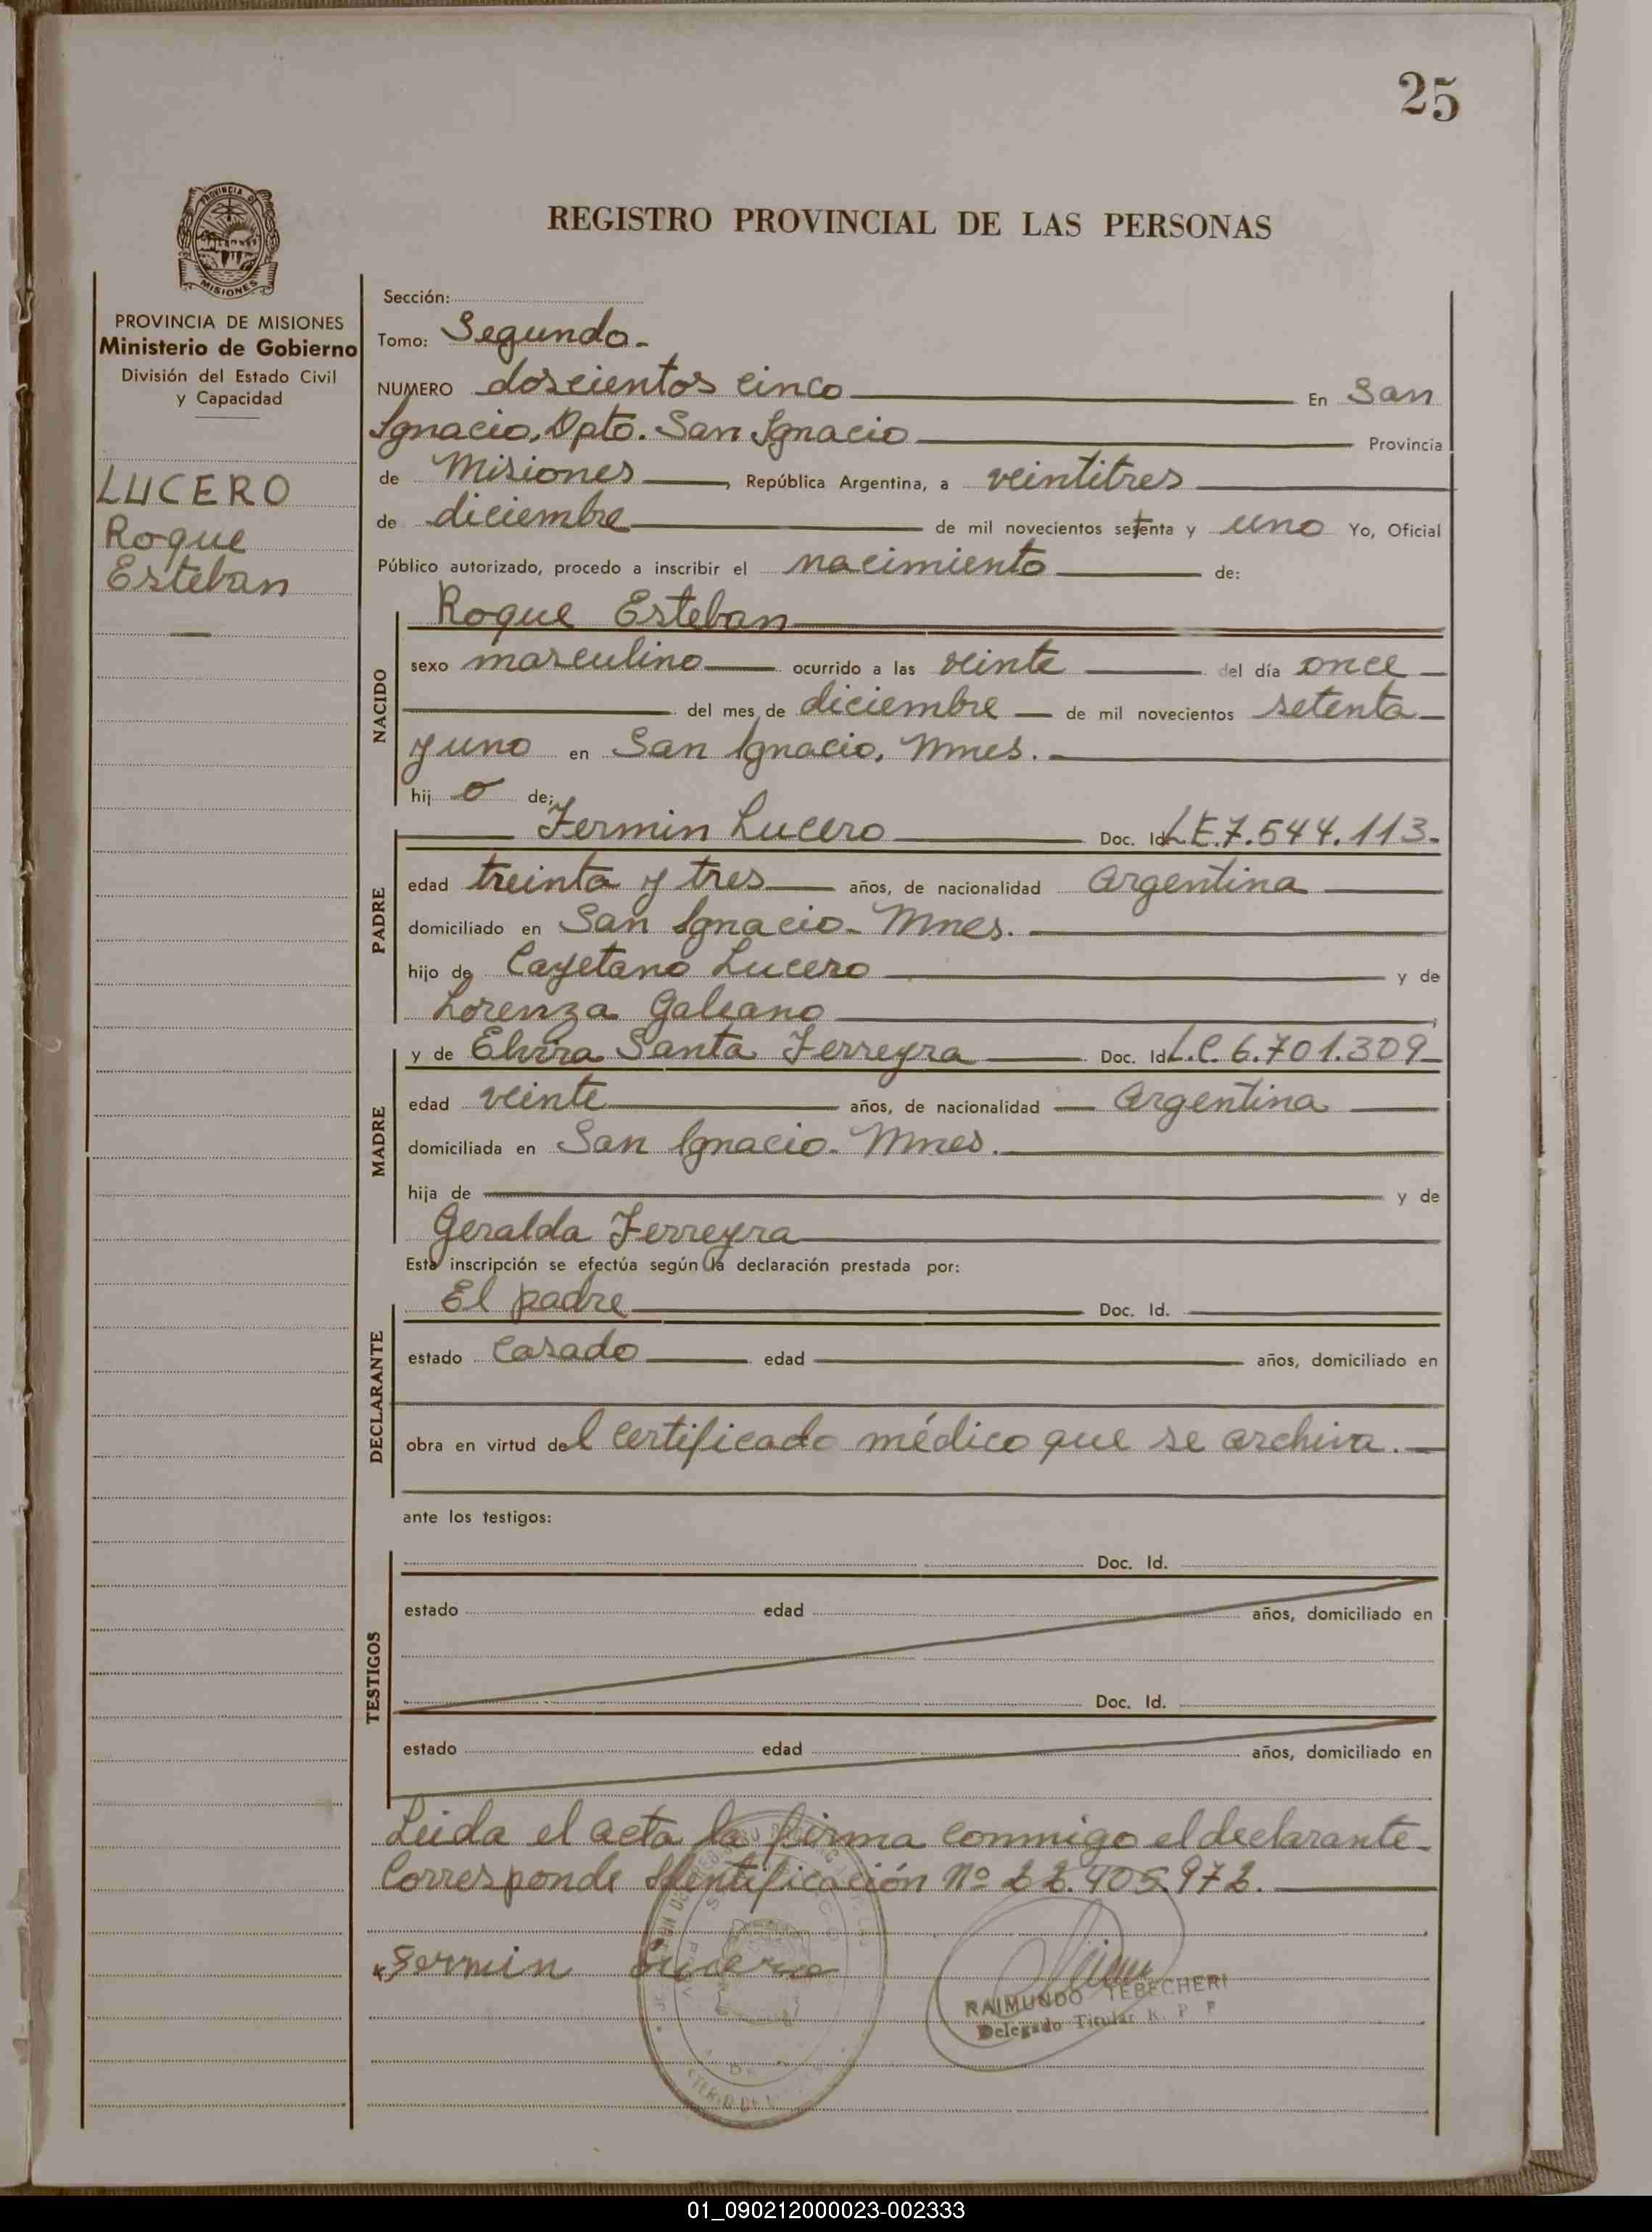 25
PROVINCIA DE
MISIONES
REGISTRO PROVINCIAL DE LAS PERSONAS
PROVINCIA DE MISIONES
Ministerio de Gobierno
División del Estado Civil
y Capacidad
LUCERO
Roque
Esteban
Sección:
Tomo: Segundo.
NUMERO doscientos cinco En San
Ignacio, Dpto. San Ignacio Provincia
de Misiones, República Argentina, a veintitres
de diciembre de mil novecientos setenta y uno Yo, Oficial
Público autorizado, procedo a inscribir el nacimiento de:
NACIDO
Roque Esteban
sexo masculino ocurrido a las veinte del día once
del mes de diciembre de mil novecientos setenta
y uno en San Ignacio, Mnes.
hij o de;
PADRE
Fermin Lucero Doc. Id. L.E. 7.544.113.
edad treinta y tres años, de nacionalidad Argentina
domiciliado en San Ignacio. Mnes.
hijo de Cayetano Lucero y de
Lorenza Galeano
MADRE
y de Elvira Santa Ferreyra Doc. Id. L.C. 6.701.309
edad veinte años, de nacionalidad Argentina
domiciliada en San Ignacio. Mnes.
hija de y de
Geralda Ferreyra
Esta inscripción se efectúa según la declaración prestada por:
DECLARANTE
El padre Doc. Id.
estado Casado edad años, domiciliado en
obra en virtud del certificado médico que se archiva.
ante los testigos:
TESTIGOS
Doc. Id.
estado edad años, domiciliado en
Doc. Id.
estado edad años, domiciliado en
Leida el acta la firma conmigo el declarante.
Corresponde Identificación Nº 22.405.972.
Fermin Lucero
RAIMUNDO TEBECHERI
Delegado Titular R. P. P
01_090212000023-002333